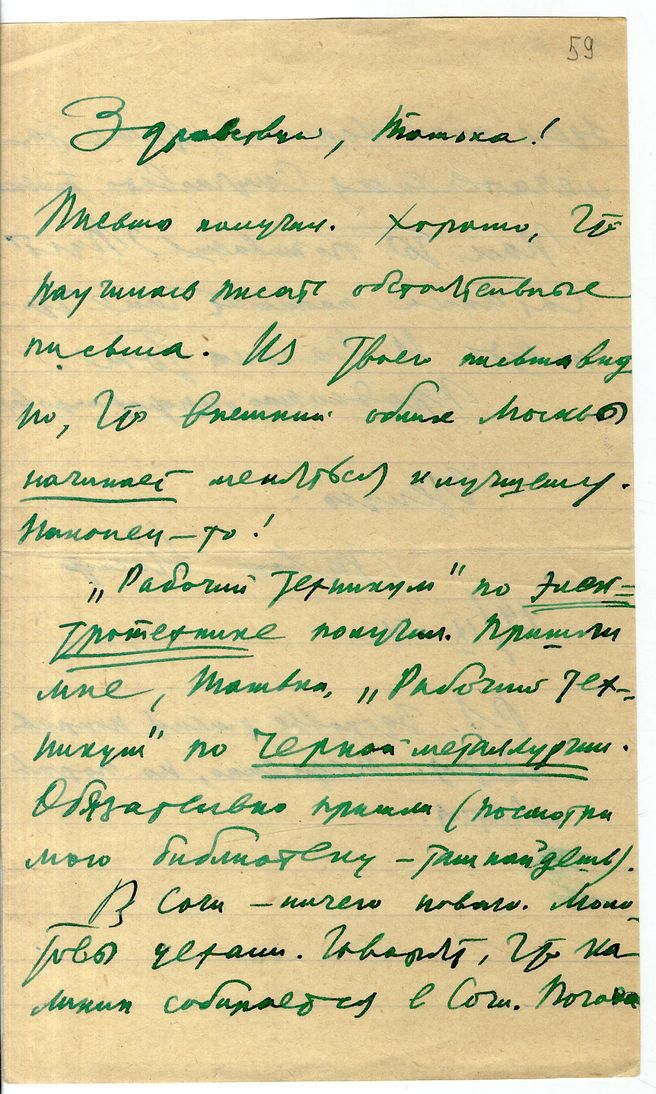 59
Здравствуй, Татька!
Письмо получил. Хорошо, что
научилась писать обстоятельные
письма. Из твоего письма вид
но, что внешний облик Москвы
начинает меняться к лучшему.
Наконец-то!
„Рабочий техникум“ по элек=
тротехнике получил. Пришли
мне, Татька, „Рабочий тех-
никум“ по черной металлургии.
Обязательно пришли (посмотри
мою библиотеку – там найдешь).
В Сочи – ничего нового. Моло-
товы уехали. Говорят, что Ка-
линин собирается в Сочи. Погода